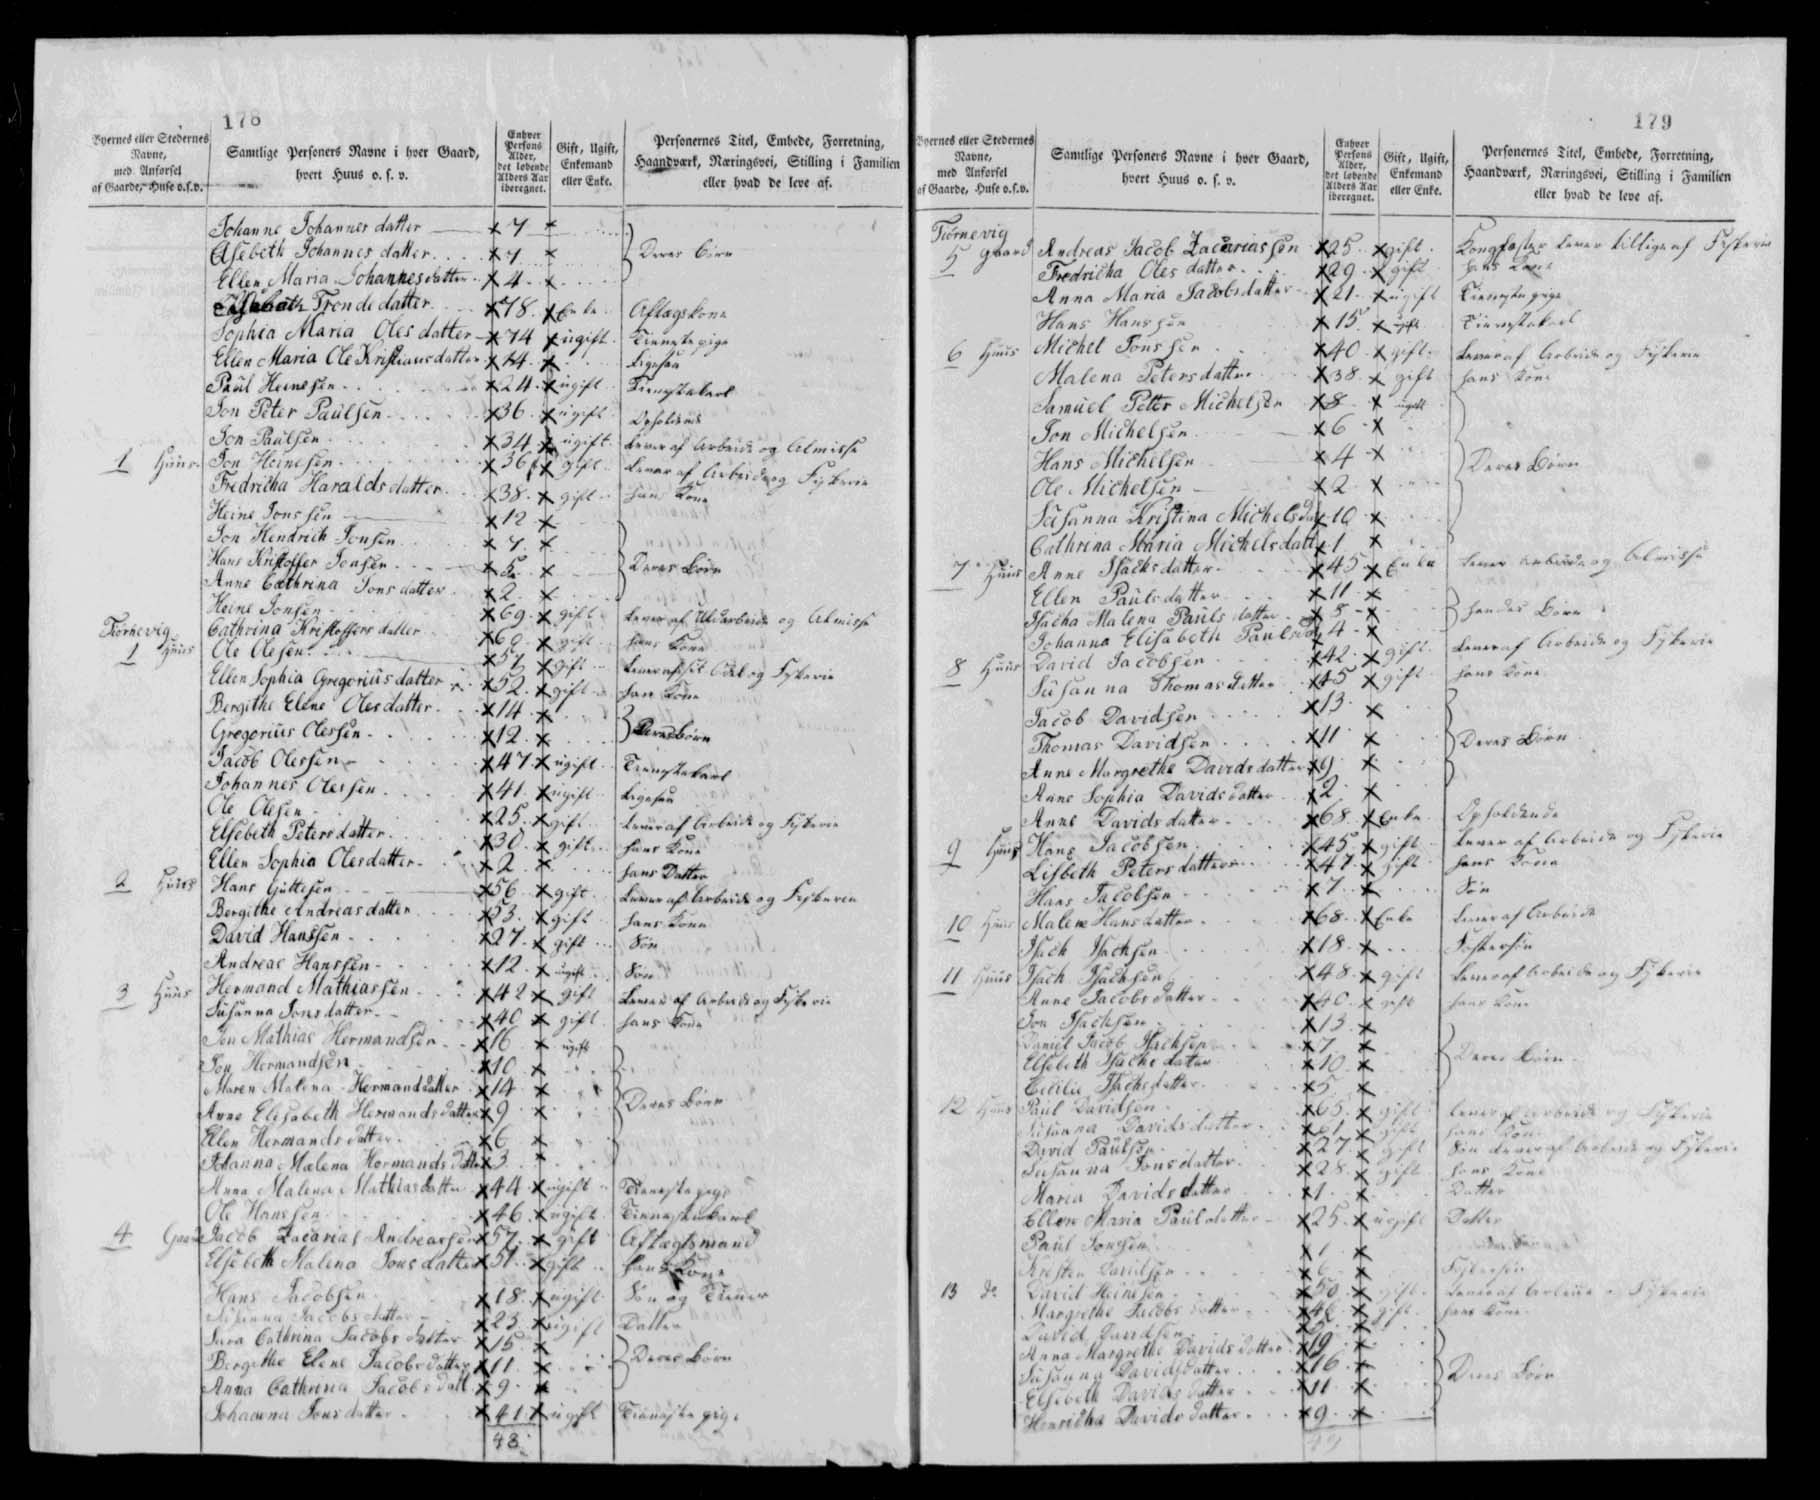 178
Byernes eller Stedernes Navne, med Anførsel af Gaarde, Huse o.s.v.
Samtlige Personers Navne i hver Gaard, hvert Huus o. s. v.
Enhver Persons Alder, det løbende Alders Aar iberegnet.
Gift, Ugift, Enkemand eller Enke.
Personernes Titel, Embede, Forretning, Haandværk, Næringsvei, Stilling i Familien eller hvad de leve af.
Johanne Johannesdatter 7
Elsebeth Johannes datter 7 Deres Børn
Ellen Maria Johannesdatter 4
Trondedatter 78 Enke Aftægskone
Sophia Maria Olesdatter 74 ugift Tienestepige
Ellen Maria Ole Kristiansdatter 14 Ligesaa
Paul Heinesen 24 ugift Tienestekarl
Jon Peter Paulsen 36 ugift Opholdende
Jon Paulsen 34 ugift Lever af Arbeide og Almisse
1 Huus Jon Heinesen 36 gift Lever af Arbeide og Fiskerie
Fredricha Haraldsdatter 38 gift hans Kone
Heine Jonssen 12
Jon Hendrich Jonsen 7
Hans Kristoffer Jonsen 5 Deres Børn
Anne Cathrina Jonsdatter 2
Heine Jonsen 69 gift Lever af Uldarbeide og Almisse
Cathrina Kristoffersdatter 60 gift hans Kone
Tiørnevig
1 Huus Ole Olesen 57 gift Lever af sit Odel og Fiskerie
Ellen Sophia Gregoriusdatter 52 gift hans Kone
Bergithe Elene Olesdatter 14
Gregorius Olessen 12 Deres Børn
Jacob Olessen 47 ugift Tienestekarl
Johannes Olessen 41 ugift Ligesaa
Ole Olesen 25 gift Lever af Arbeide og Fiskerie
Elsebeth Petersdatter 30 gift hans Kone
Ellen Sophia Olesdatter 2 hans Datter
2 Huus Hans Guttesen 56 gift Lever af Arbeide og Fiskerie
Bergithe Andreasdatter 53 gift hans Kone
David Hanssen 27 gift Søn
Andreas Hanssen 12 ugift Søn
3 Huus Hermand Mathiassen 42 gift Lever af Arbeide og Fiskerie
Susanna Jonsdatter 40 gift hans Kone
Jon Mathias Hermandsen 16 ugift
Jon Hermandsen 10
Maren Malena Hermanddatter 14
Anne Elisabeth Hermandsdatter 9 Deres Børn
Ellen Hermandsdatter 6
Johanna Malena Hermandsdatter 3
Anna Malena Mathiasdatter 44 ugift Tienestepige
Ole Hanssen 46 ugift Tienestekarl
4 Gaard Jacob Zacarias Andreassen 57 gift Aftægtsmand
Elsebeth Malena Jonsdatter 51 gift hans Kone
Hans Jacobsen 18 ugift Søn og Tiener
Susanna Jacobsdatter 23 ugift Datter
Sara Cathrina Jacobsdatter 15
Bergithe Elene Jacobsdatter 11 Deres Børn
Anna Cathrina Jacobsdatt 9
Johanna Jonsdatter 41 ugift Tienestepige
48
179
Byernes eller Stedernes Navne, med Anførsel af Gaarde, Huse o.s.v.
Samtlige Personers Navne i hver Gaard, hvert Huus o. s. v.
Enhver Persons Alder, det løbende Alders Aar iberegnet.
Gift, Ugift, Enkemand eller Enke.
Personernes Titel, Embede, Forretning, Haandværk, Næringsvei, Stilling i Familien eller hvad de leve af.
Tiørnevig
5 Gaard Andreas Jacob Zacariassen 25 gift Kongsfæster lever tillige af Fiskerie
Fredricha Olesdatter 29 gift hans Kone
Anna Maria Jacobsdatter 21 ugift Tienestepige
Hans Hanssen 15 ugift Tienestekarl
6 Huus Michel Jonssen 40 gift Lever af Arbeide og Fiskerie
Malena Petersdatter 38 gift hans Kone
Samuel Petter Michelsen 8 ugift
Jon Michelsen 6
Hans Michelsen 4 Deres Børn
Ole Michelsen 2
Susanna Kristina Michelsda 10
Cathrina Maria Michelsdatt 1
7 Huus Anne Isachsdatter 45 Enke Lever Arbeide og Almisse
Ellen Paulsdatter 11
Isacha Malena Paulsdatter 8 hendes Børn
Johanna Elisabeth Paulsda 4
8 Huus David Jacobsen 42 gift Lever af Arbeide og Fiskerie
Susanna Thomasdatter 45 gift hans Kone
Jacob Davidsen 13
Thomas Davidsen 11 Deres Børn
Anne Margrethe Davidsdatter 9
Anne Sophia Davidsdatter 2
Anne Davidsdatter 68 Enke Opholdende
9 Huus Hans Jacobsen 45 gift Lever af Arbeide og Fiskerie
Lisbeth Petersdatter 47 gift hans Kone
Hans Jacobsen 7 Søn
10 Huus Malene Hansdatter 68 Enke Lever af Arbeide
Isach Isachsen 18 Fostersøn
11 Huus Isach Isachsen 48 gift Lever af Arbeide og Fiskerie
Anne Jacobsdatter 40 gift hans Kone
Jon Isachsen 13
Daniel Jacob Isachsen 7
Elsebeth Isachsdatter 10 Deres Børn
Cecilie Isachsdatter 5
12 Huus Paul Davidsen 65 gift Lever af Arbeide og Fiskerie
Susanna Davidsdatter 61 gift hans Kone
David Paulsen 27 gift Søn Lever af Arbeide og Fiskerie
Susanna Jonsdatter 28 gift hans Kone
Maria Davidsdatter 1 Datter
Ellen Maria Paulsdatter 25 ugift Datter
Paul Jonsen 1
Kresten Davidsen 6
13 do David Heinesen 50 gift Lever af Arbeide Fiskerie
Margrethe Jacobsdatter 46 gift hans Kone
David Davidsen
Anna Margrethe Davidsdatter 19
Susanna Davidsdatter 16 Deres Børn
Elsebeth Davidsdatter 11
Henricha Davidsdatter 9
49